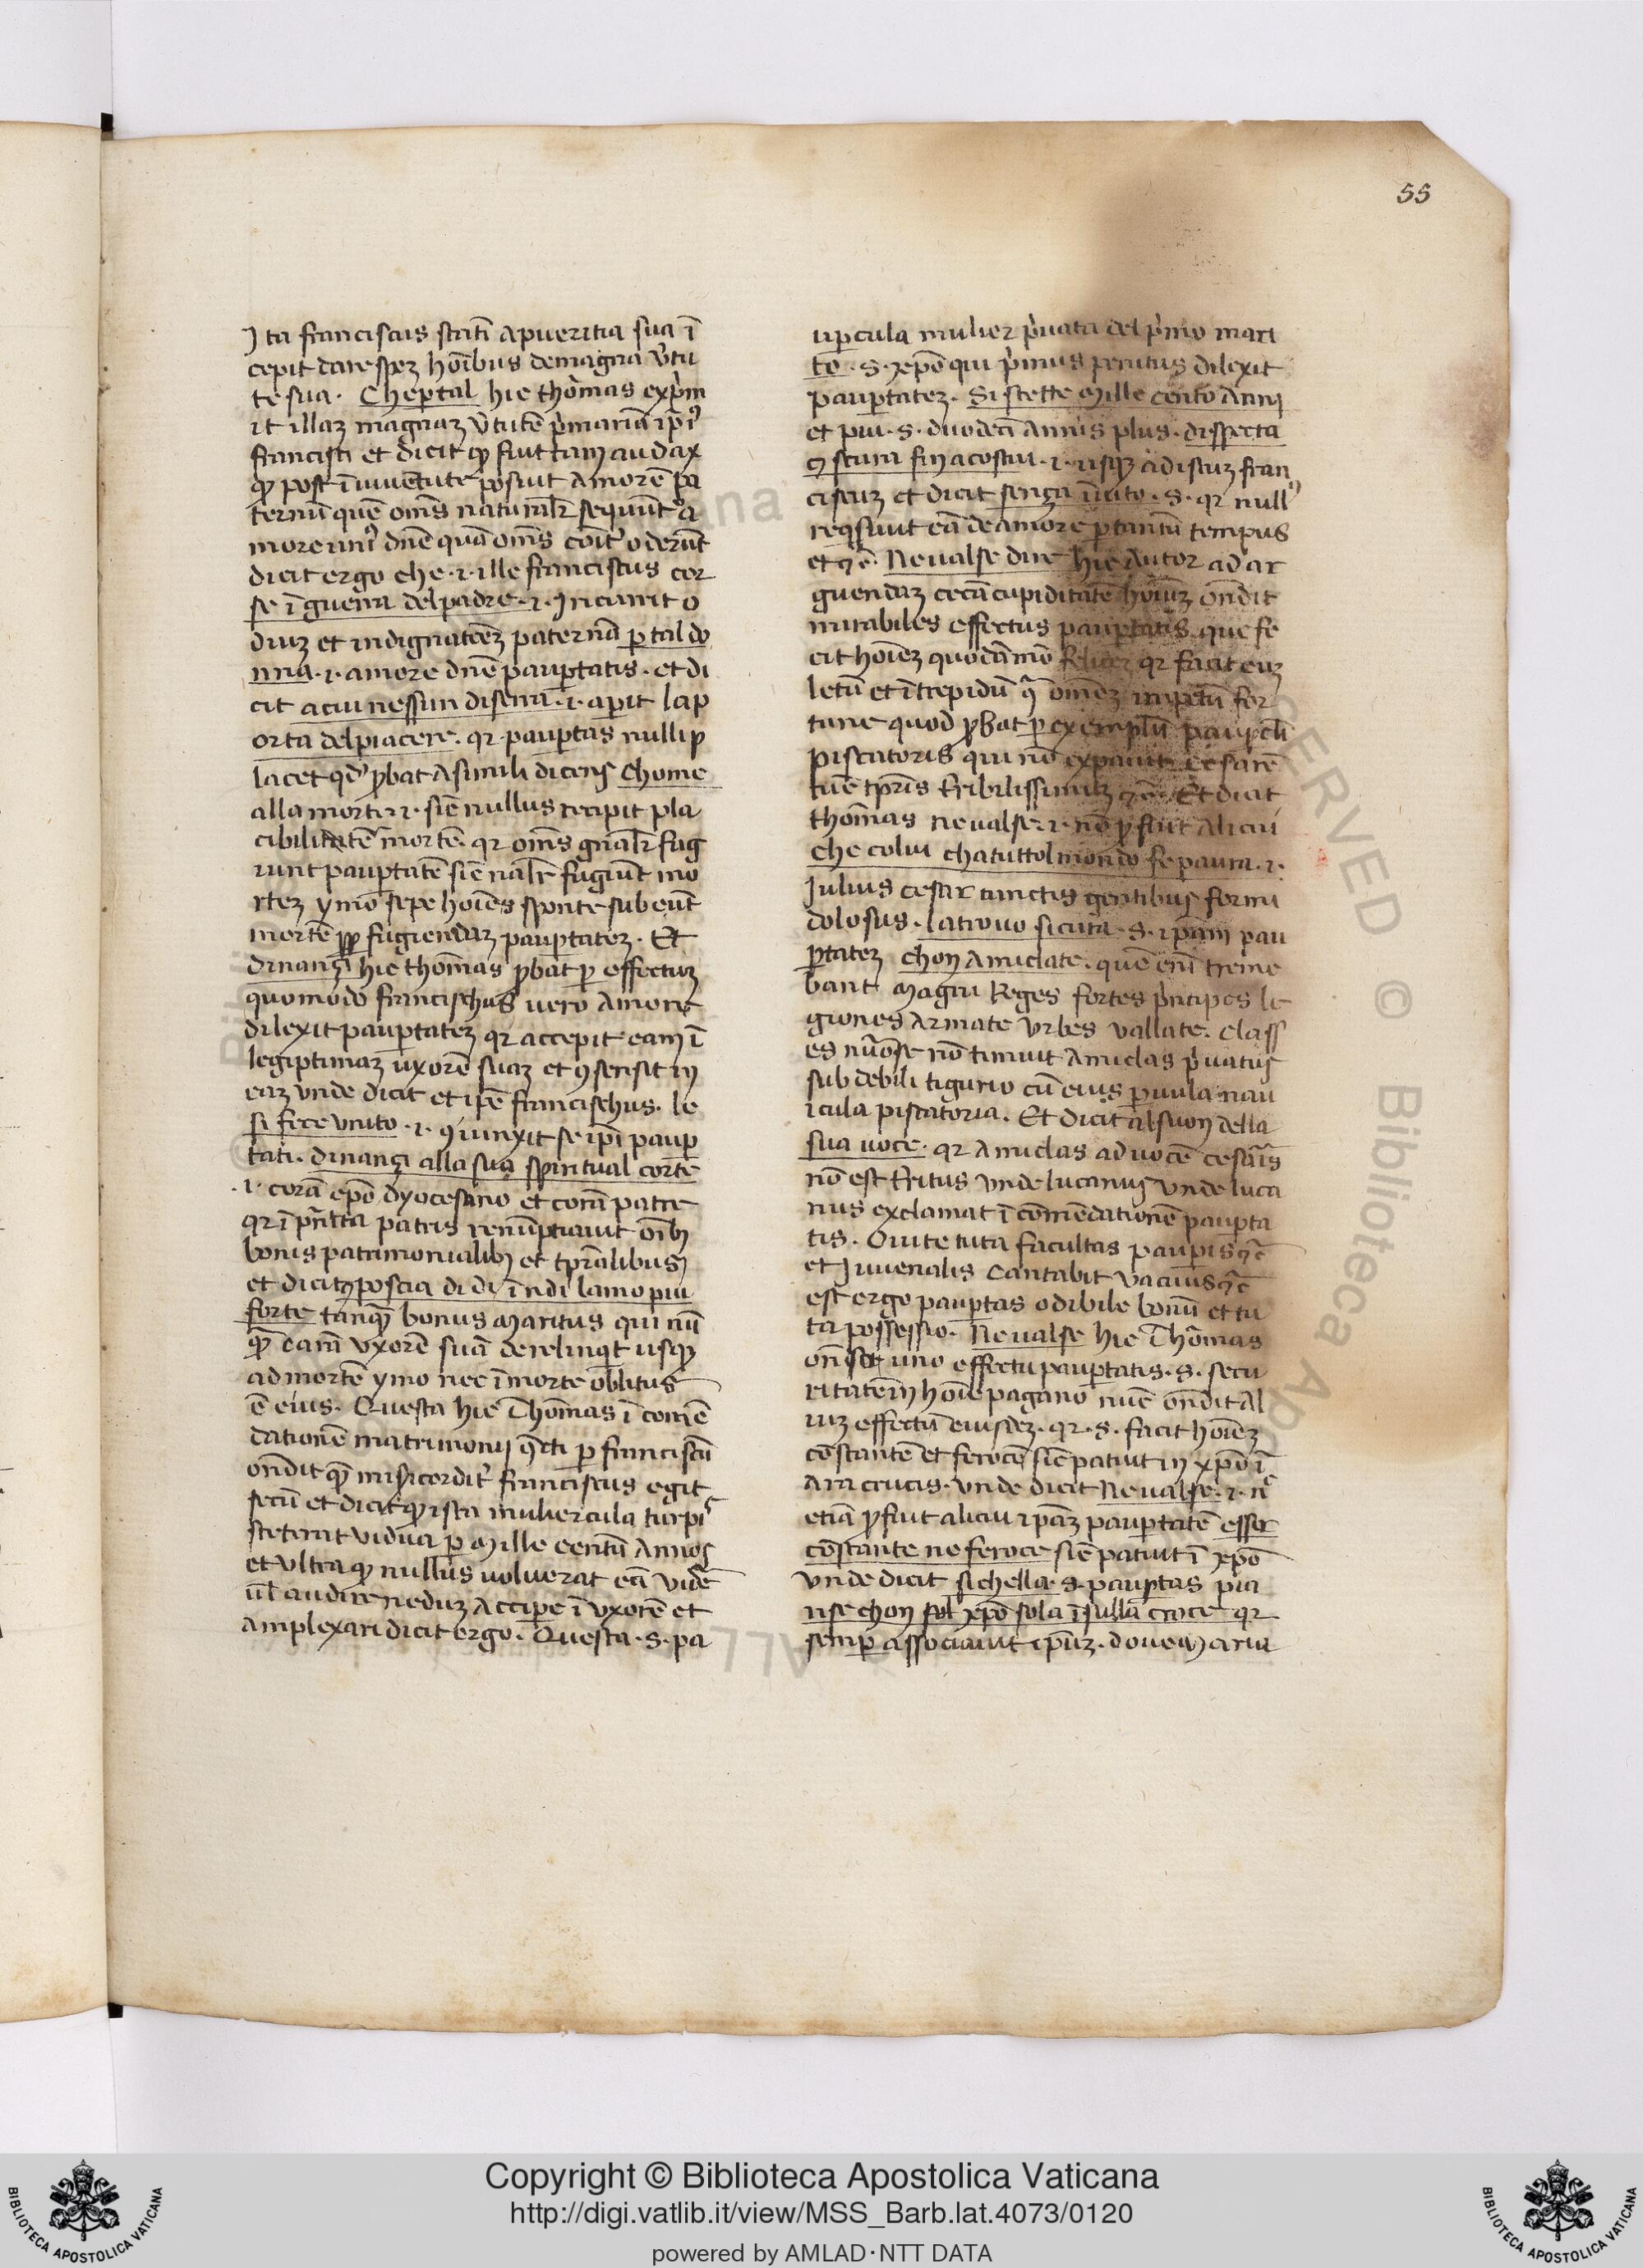 55
Ita franciscus statĩ apueritia sua ĩ
cepit dare spez hoĩbus demagna v̾tu
te sua . Che per tal hic thomas exp̾m
it illaz magnaz v̾tutẽ p̾mariã ip̃i᾽
francisci et dicit ꝙ fuit tam audax
ꝙ post ĩ iuuẽtute posuit amorẽ pa
ternũ quẽ om̃s natural̃r sequunt᾽ a
more uni᾽ dñe quã om̃s cõit᾽ oderũt
dicit ergo che .i. ille franciscus cor
se ĩ guerra del padre .i. Incurrit o
diuz et indignatõez paternã ꝑ tal do
nna .i. amore dñe pauꝑtatis . et di
cit acui nessun diserra .i. aperit la p
orta del piacere . qr pauꝑtas nulli p
lacet qđ ꝓbat asimili dicens Chome
alla morte .i. sic̃ nullus recipit pla
cibilitatẽ mortẽ . qr om̃s gñal̃r fug
iunt pauꝑtatẽ sic̃ nal̃r fugiũt mo
rtez ymo sepe hoĩes sponte subeũt
mortẽ ꝓp fugiendaz pauꝑtatez . Et
dinanzi hic thomas ꝓbat ꝑ effectuz
quomodo francischus uero amore
dilexit pauꝑtatez qr accepit eam ĩ
legiptimaz uxorẽ suaz et ꝯsensit in
eaz vnde dicit et ip̃e francischus . le
si fece vnito .i. ꝯiunxit se ip̃i pauꝑ
tati . dinanzi alla sua spiritual corte
.i. corã ep̃o dyocesano et corã patre
qr ĩ pñtia patris renũptiauit oĩbȝ
bonis patrimonialibȝ et tp̃ralibus
et dicit ꝯposcia di di ĩn di lamo piu
forte tanqȝ bonus maritus qui nũ
qȝ carã vxorẽ suã derelinqt usqȝ
ad mortẽ ymo nec ĩ morte oblitus
ẽ eius . Questa hic Thomas ĩ com̃e
datiõne matrimonij ꝯtracti ꝑ franciscũ
oñdit qȝ misicordit᾽ franciscus egit
secũ et dicit ꝙ ista muliercula turpi᾽
steterat vidua ꝑ mille centũ annos
et ultra ꝙ nullus uoluerat eã vide᾽
ul̃ audire neduz accipe ĩ vxorẽ et
amplexari dicit ergo . Questa .s. pa
uꝑcula mulier p̾uata del p̾mo mari
to .s. xp̃o qui p̾mus penitus dilexit
pauꝑtatez . Si stette mille cento anni
et piu .s. duodecĩ annis plus . dispecta
ꝯ scura fin acostui .i. usqȝ ad istuz fran
ciscuz et dicit senza ĩuito .s. qr null᾽
reqsiuit eã de amore ꝑ tantũ tempus
et ꝯc̃ . Ne ualse dire hic autor ad ar
guendaz cecã cupiditatẽ hoĩuz oñdit
mirabiles effectus pauꝑtatis que fe
cit hoĩez quodãmo felicez qr facit euz
letũ et ĩtrepidũ ꝯ̃ om̃ez impetũ for
tune quod ꝓbat ꝑ exemplũ pauꝑcl̃i
piscatoris qui nõ expauit cesarẽ
tũc tp̃ris tribilissimuz ꝯc̃ . Et dicit
thomas ne ualse .i. nõ ꝓfuit alicui
che colui cha tuttol mondo fe paura .i.
Julius cesar cunctis gentibus formi
dolosus . la trouo sicura .s. ip̃am pau
ꝑtatez chon amiclate . quẽ eni᾽ treme
bant magni Reges fortes p̾ncipes le
giones armate vrbes vallate . class
es nũose nõ timuit amiclas p̾uatus
sub debili tigurio cũ eius ꝑuula nau
icula piscatoria . Et dicit alsuon della
sua uoce . qr amiclas ad uocẽ cesaris
nõ est tritus vnde lucanus vnde luca
nus exclamat ĩ com̃endationẽ pauꝑta
tis . O uite tuta facultas pauꝑis ꝯc̃
et Juuenalis Cantabit vacuus ꝯc̃
est ergo pauꝑtas odibile bonũ et tu
ta possessio . Ne ualse hic Thomas
oñso uno effectu pauꝑtatis .s. secu
ritatẽ in hoĩe pagano nũc oñdit al
iuz effectũ eiusdez . qr .s. facit hoĩez
cõstantẽ et ferocẽ sic̃ patuit in xp̃o ĩ
ara crucis . vnde dicit Ne ualse .i. n᾽
etiã ꝓfuit alicui ip̃az pauꝑtatẽ esser
cõstante ne feroce sic̃ patuit ĩ xp̃o
vnde dicit si chella .s. pauꝑtas pia
nse chon xp̃o sola ĩ sulla croce qr
semꝑ associauit ip̃uz . doue maria